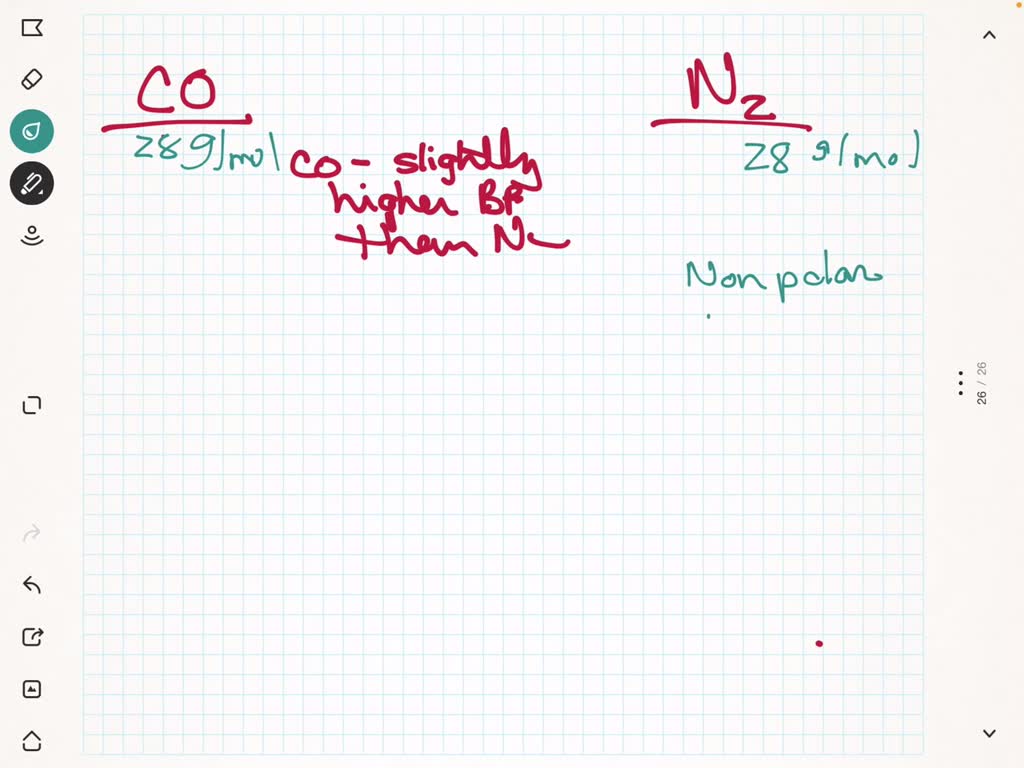 CO
N₂
28 g/mol
28 g/mol
CO - slightly
higher BP
than N₂
Nonpolar
26 / 26